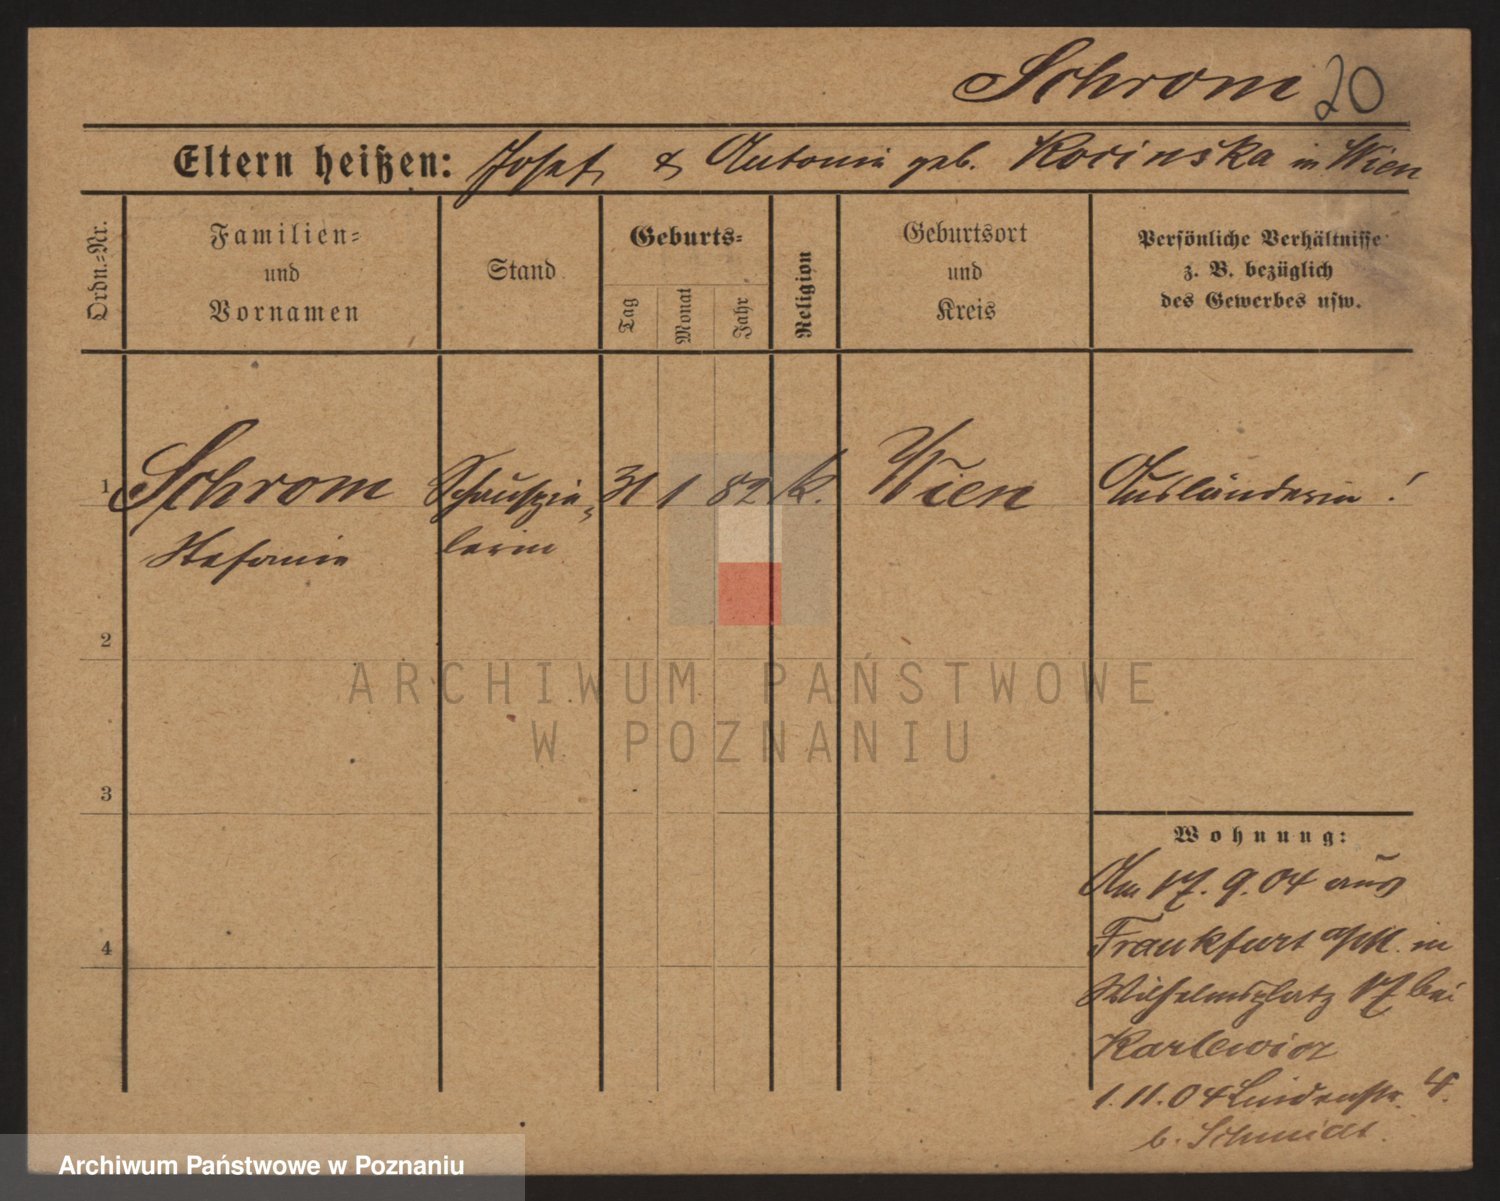 Schrom 20
Eltern heißen: Josef & Antonie geb. Kocinska in Wien
Ordn.-Nr.
Familien-
und
Vornamen
Stand
Geburts-
Tag
Monat
Jahr
Religion
Geburtsort
und
Kreis
Persönliche Verhältnisse
z. B. bezüglich
des Gewerbes usw.
1 Schrom Schauspie- 31 1 82 K. Wien Ausländerin!
Stefanie lerin
2
ARCHIWUM PAŃSTWOWE
W POZNANIU
3
Wohnung:
Am 17. 9. 04 aus
4
Frankfurt a/M. in
Wilhelmsplatz 17 bei
Karlewicz
1. 11. 04 Lindenstr. 4.
b. Schmidt.
Archiwum Państwowe w Poznaniu